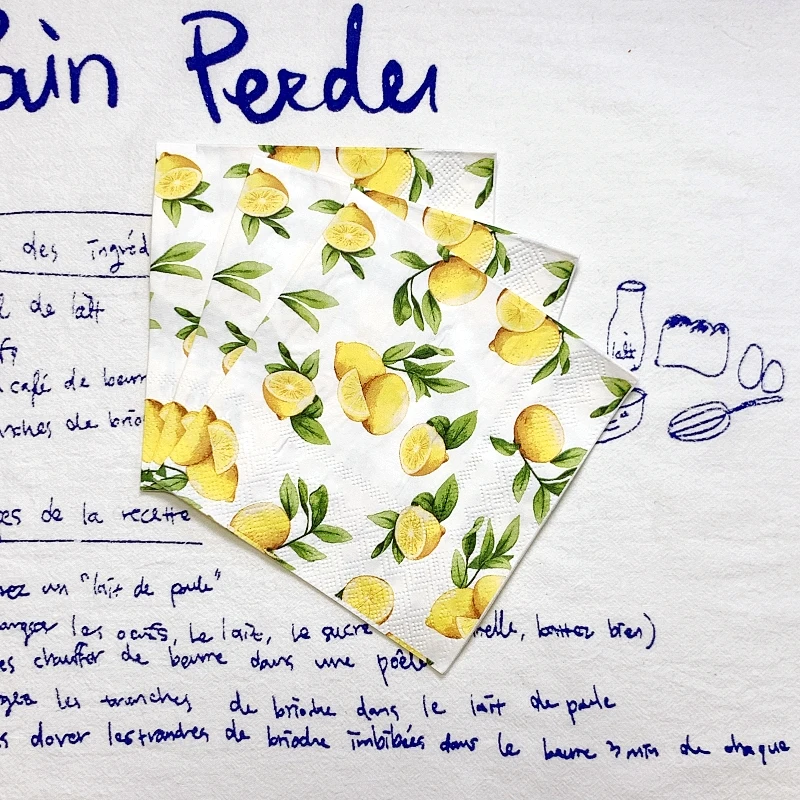 Pain Perdu
des ingréd
de lait
café de beurr
nches de brio
es de la recette
ez un "lait de poule"
angez les œufs, le lait, le sucre nelle, battez bien)
es chauffer de beurre dans une poêle
gez les tranches de brioche dans le lait de poule
s dorer les tranches de brioche imbibées dans le beurre 3 min de chaque
lait